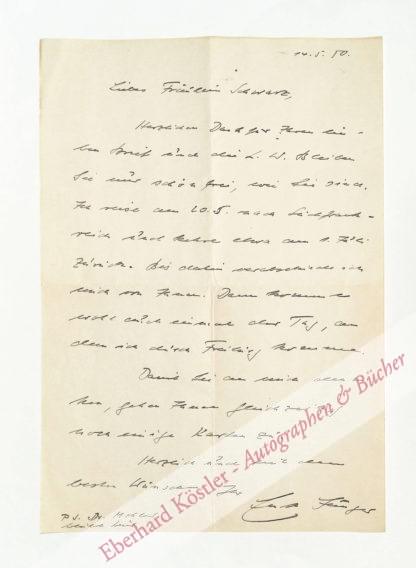 14.5.50.
Liebes Fräulein Schwarz,
Herzlichen Dank für Ihren lie-
ben Brief und die L. W. Bleiben
Sie nur schön frei, wie Sie sind.
Ich reise am 20.5. nach Südfrank-
reich und kehre etwa am 1. Juli
zurück. Bis dahin verabschiede ich
mich von Ihnen. Dann kommt
wohl auch einmal der Tag, an
dem ich durch Freiburg komme.
Damit Sie an mich den-
ken, gehen Ihnen gleichzeitig
noch einige Karten zu.
Herzlich und mit den
besten Wünschen Ihr
Ernst Jünger
P.S. Dr. Mohler
Eberhard Köstler - Autographen & Bücher